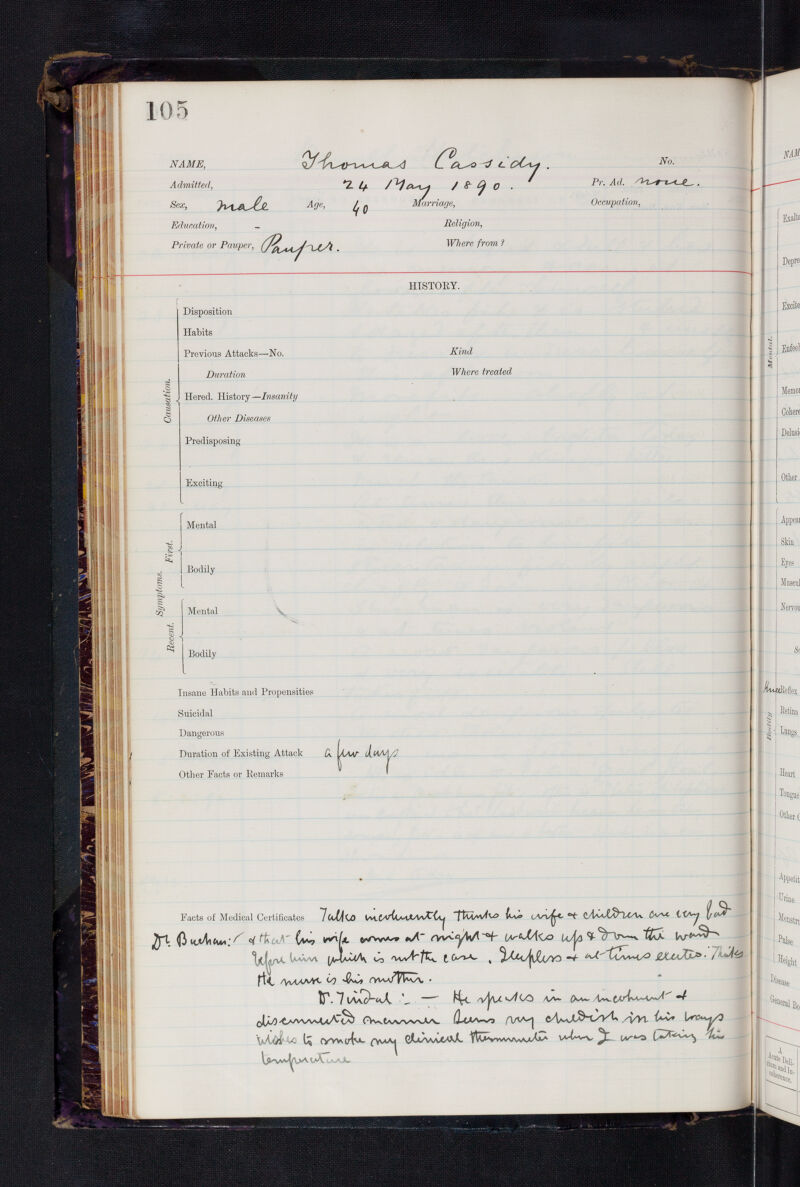 105
NAME, Thomas Cassidy. No.
Admitted, 24 May 1890. Pr. Ad. none.
Sex, Male Age, 40 Marriage, Occupation,
Education, - Religion,
Private or Pauper, Pauper. Where from?
HISTORY.
Causation.
Disposition
Habits
Previous Attacks—No. Kind
Duration Where treated
Hered. History—Insanity
Other Diseases
Predisposing
Exciting
Symptoms.
First.
Mental
Bodily
Recent.
Mental
Bodily
Insane Habits and Propensities
Suicidal
Dangerous
Duration of Existing Attack a few days
Other Facts or Remarks
Facts of Medical Certificates Talks incoherently thinks his wife & children are very bad
Dr. Buchan: & that his wife comes at night & walks up & down the ward
before him which is not the case, Sleepless & at times excited. Thinks
the nurse is his mother.
Dr. Tindal :— He speaks in an incoherent &
disconnected manner Seems very childish in his ways
wishes to smoke my clinical thermometer when I was taking his
temperature
NAM
Exalta
Depre
Excite
Enfeeb
Mental.
Memor
Cohere
Delusi
Other
Appear
Skin
Eyes
Muscul
Nervou
Knee Reflex
Retina
Bodily
Lungs
Heart
Tongue
Other
Appetit
Urine
Menstru
Pulse
Height
Disease
General Bo
A
Acute Deli-
rium and In-
coherence.